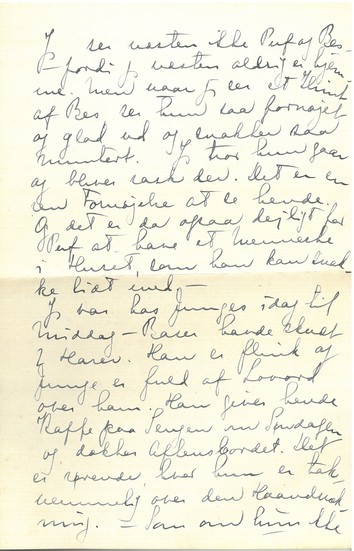 Jeg ser næsten ikke Puf og Bes
– fordi jeg næsten aldrig er hjem-
me. Men naar jeg ser et Glimt
af Bes ser hun saa fornøjet
og glad ud og snakker saa
muntert. Jeg tror hun gaar
og bliver rask der. Det er en
ren Fornøjelse at se hende.
Og det er da ogsaa dejligt for
Puf at have et Menneske
i Huset, som han kan snak-
ke lidt med –
Jeg var hos Junges idag til
Middag – Baser havde skudt
Haren. Han er flink og
Junge er fuld af Lovord
over ham. Han giver hende
Kaffe paa Sengen om Søndagen
og dækker Aftensbordet. Det
er rørende, hvor hun er tak-
nemmelig over den Haandsræk-
ning. – Som om hun ikke